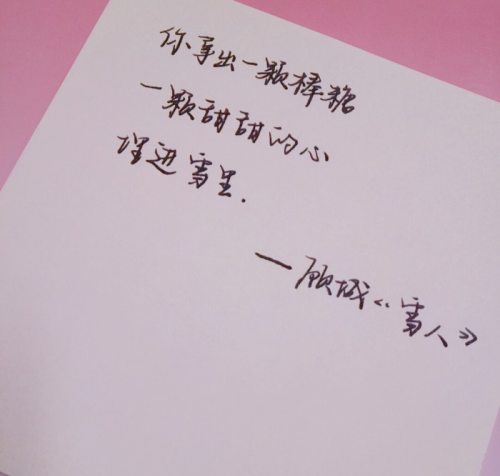 你拿出一颗棒糖
一颗甜甜的心
埋进雪里.
—顾城《雪人》